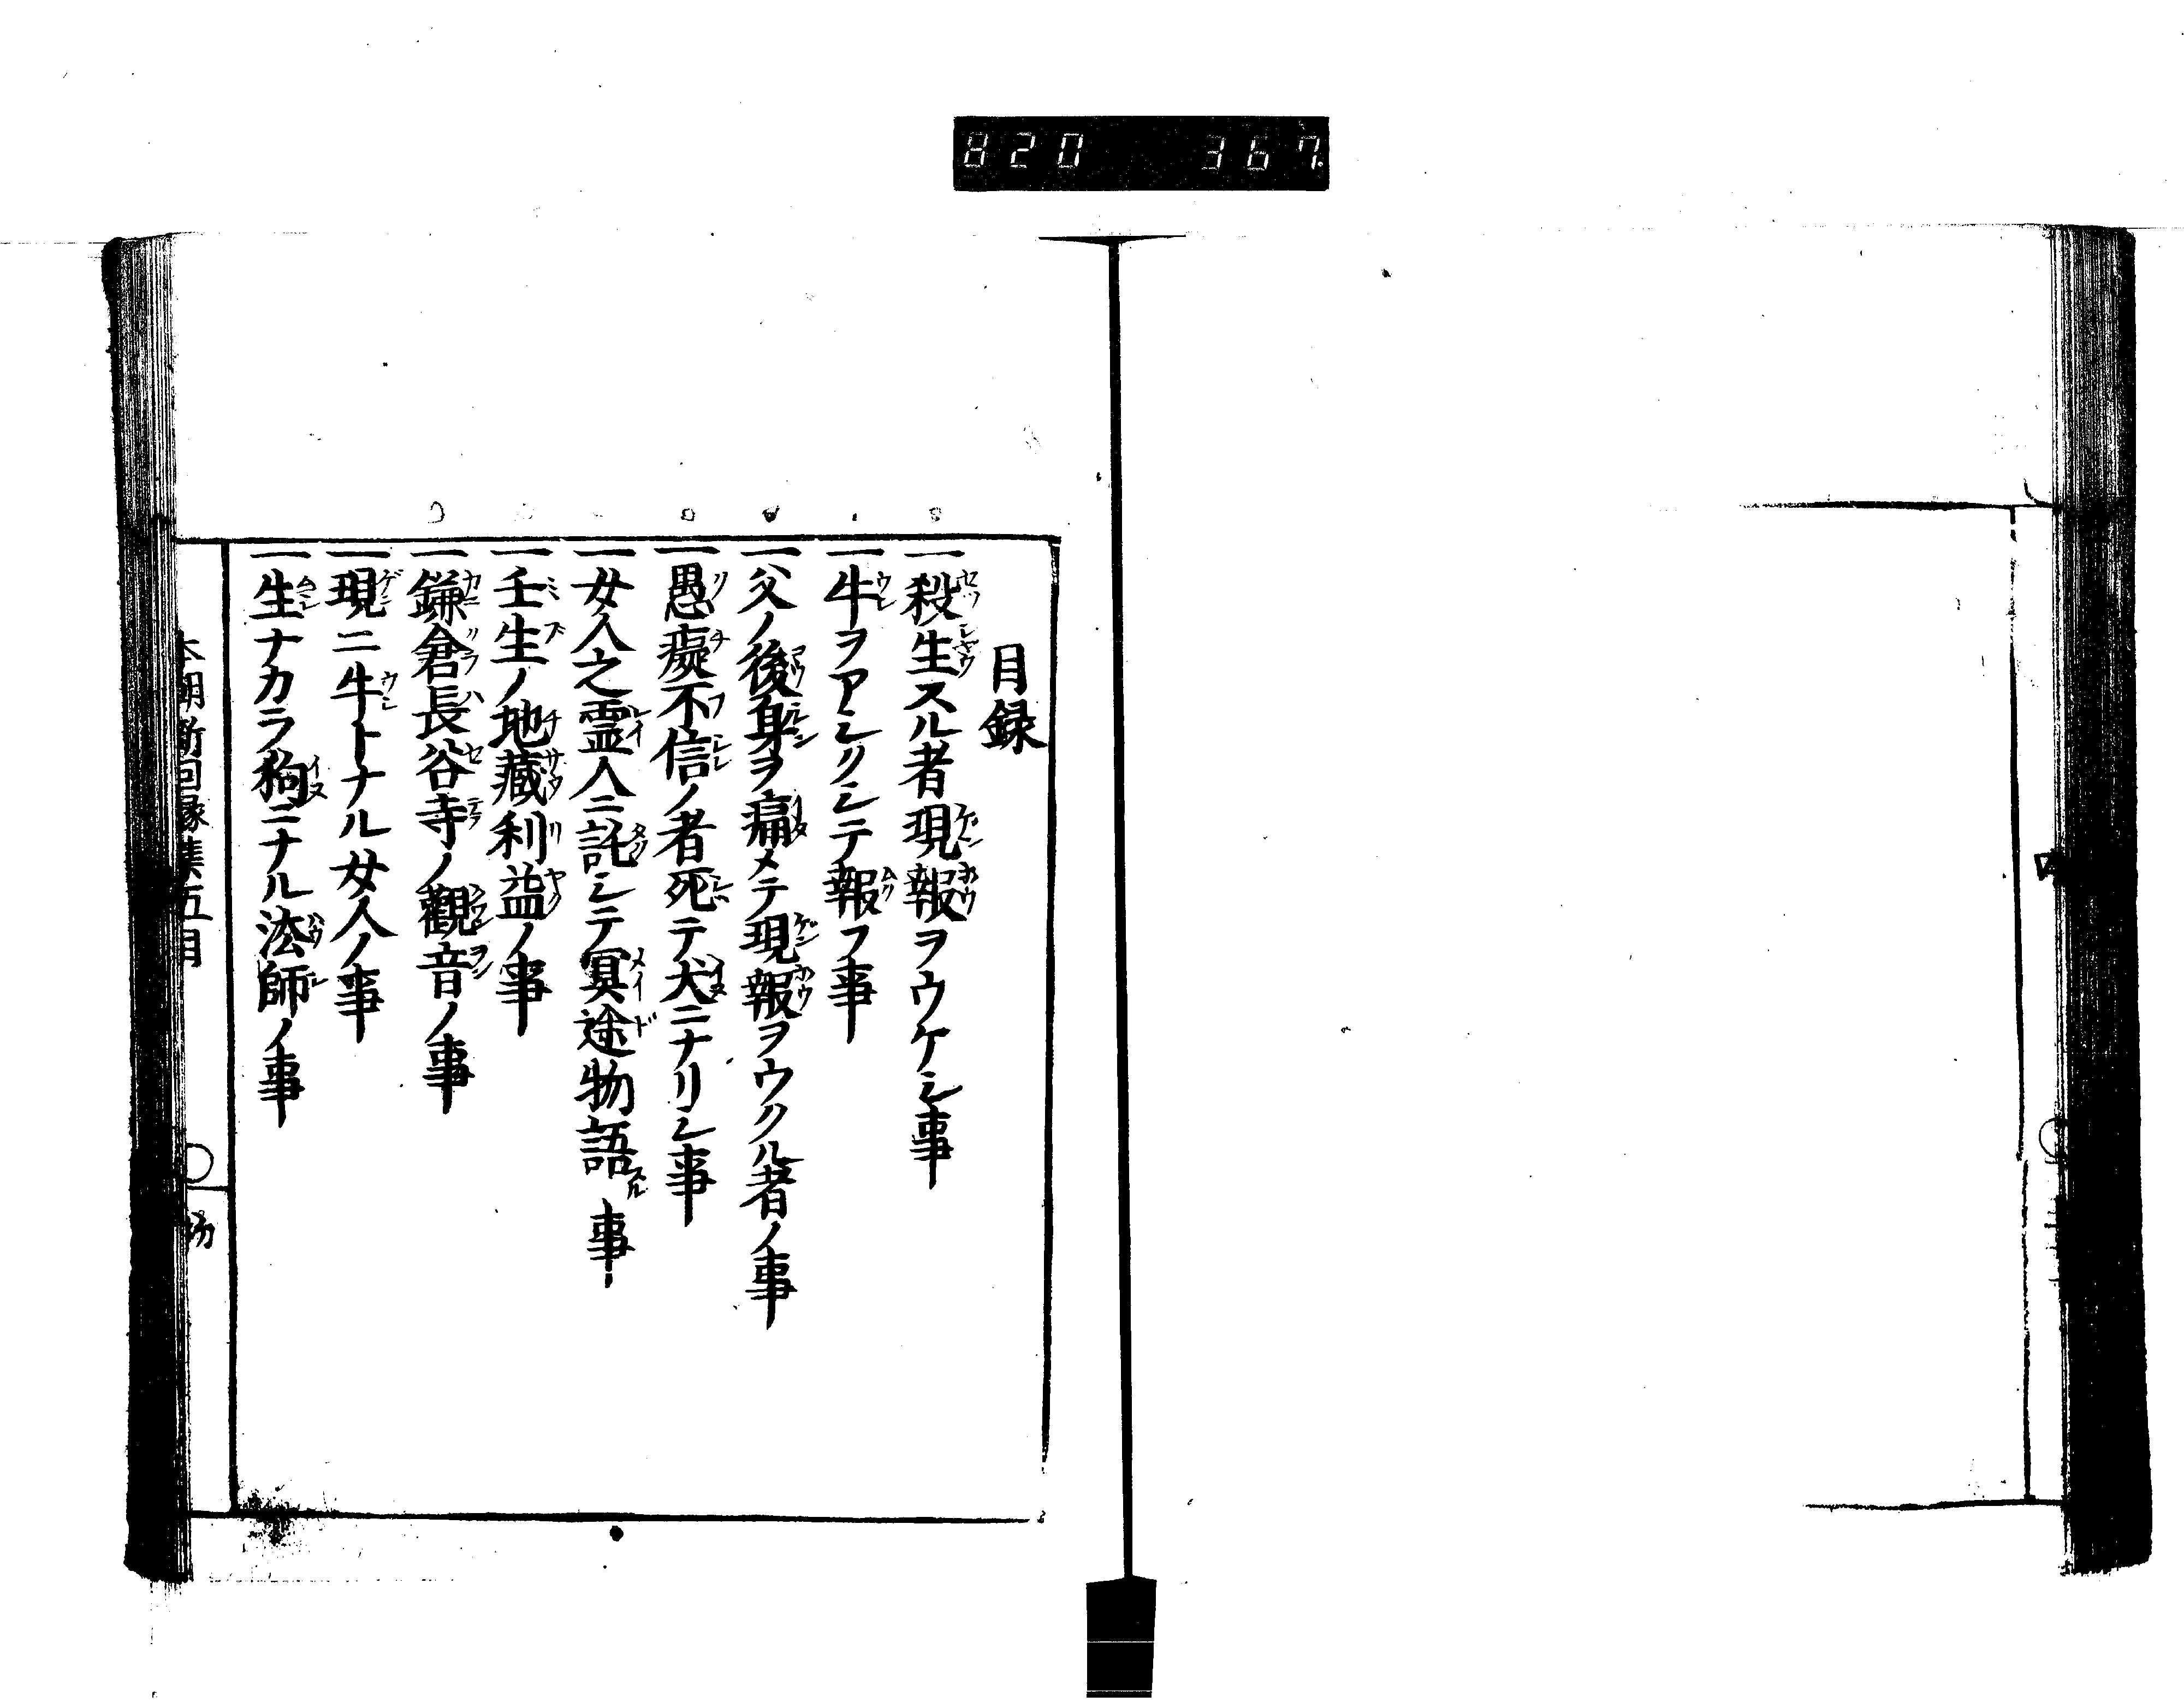 820 367
目録
一殺生スル者現報ヲウケシ事
一牛ヲアシクシテ報フ事
一父ノ後身ヲ痛メテ現報ヲウクル者ノ事
一愚癡不信ノ者死テ犬ニナリシ事
一女人之霊人ニ託シテ冥途物語スル事
一壬生ノ地藏利益ノ事
一鎌倉長谷寺ノ觀音ノ事
一現ニ牛トナル女人ノ事
一生ナカラ狗ニナル法師ノ事
本朝新因縁集五目